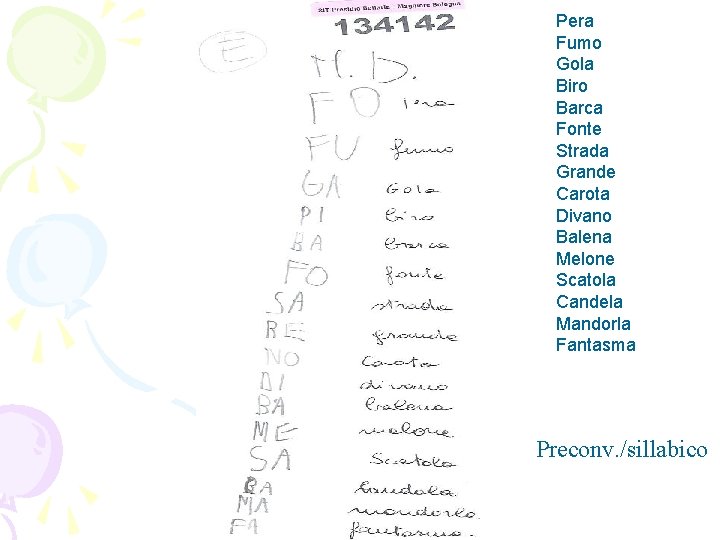 SIT Presidio Bellaria - Maggiore Bologna
134142
E
M. D.
FO pera
FU fumo
GA Gola
PI biro
BA barca
FO fonte
SA strada
RE grande
NO Carota
DI divano
BA balena
ME melone
SA Scatola
BA candela
MA mandorla
FA fantasma
Pera
Fumo
Gola
Biro
Barca
Fonte
Strada
Grande
Carota
Divano
Balena
Melone
Scatola
Candela
Mandorla
Fantasma
Preconv./sillabico